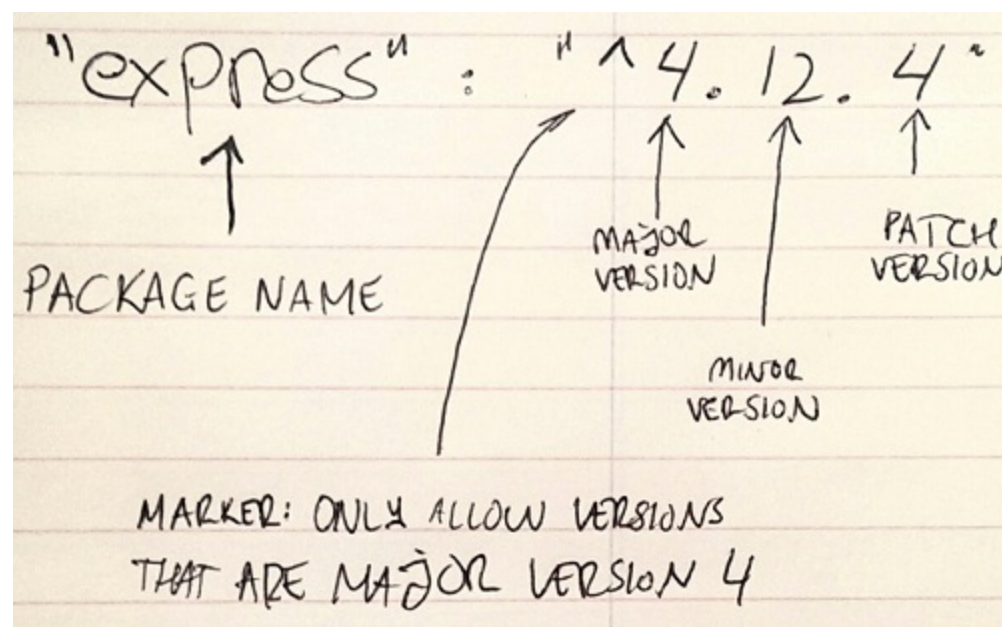 "express" : "^4.12.4"
PACKAGE NAME
MAJOR
VERSION
MINOR
VERSION
PATCH
VERSION
MARKER: ONLY ALLOW VERSIONS
THAT ARE MAJOR VERSION 4